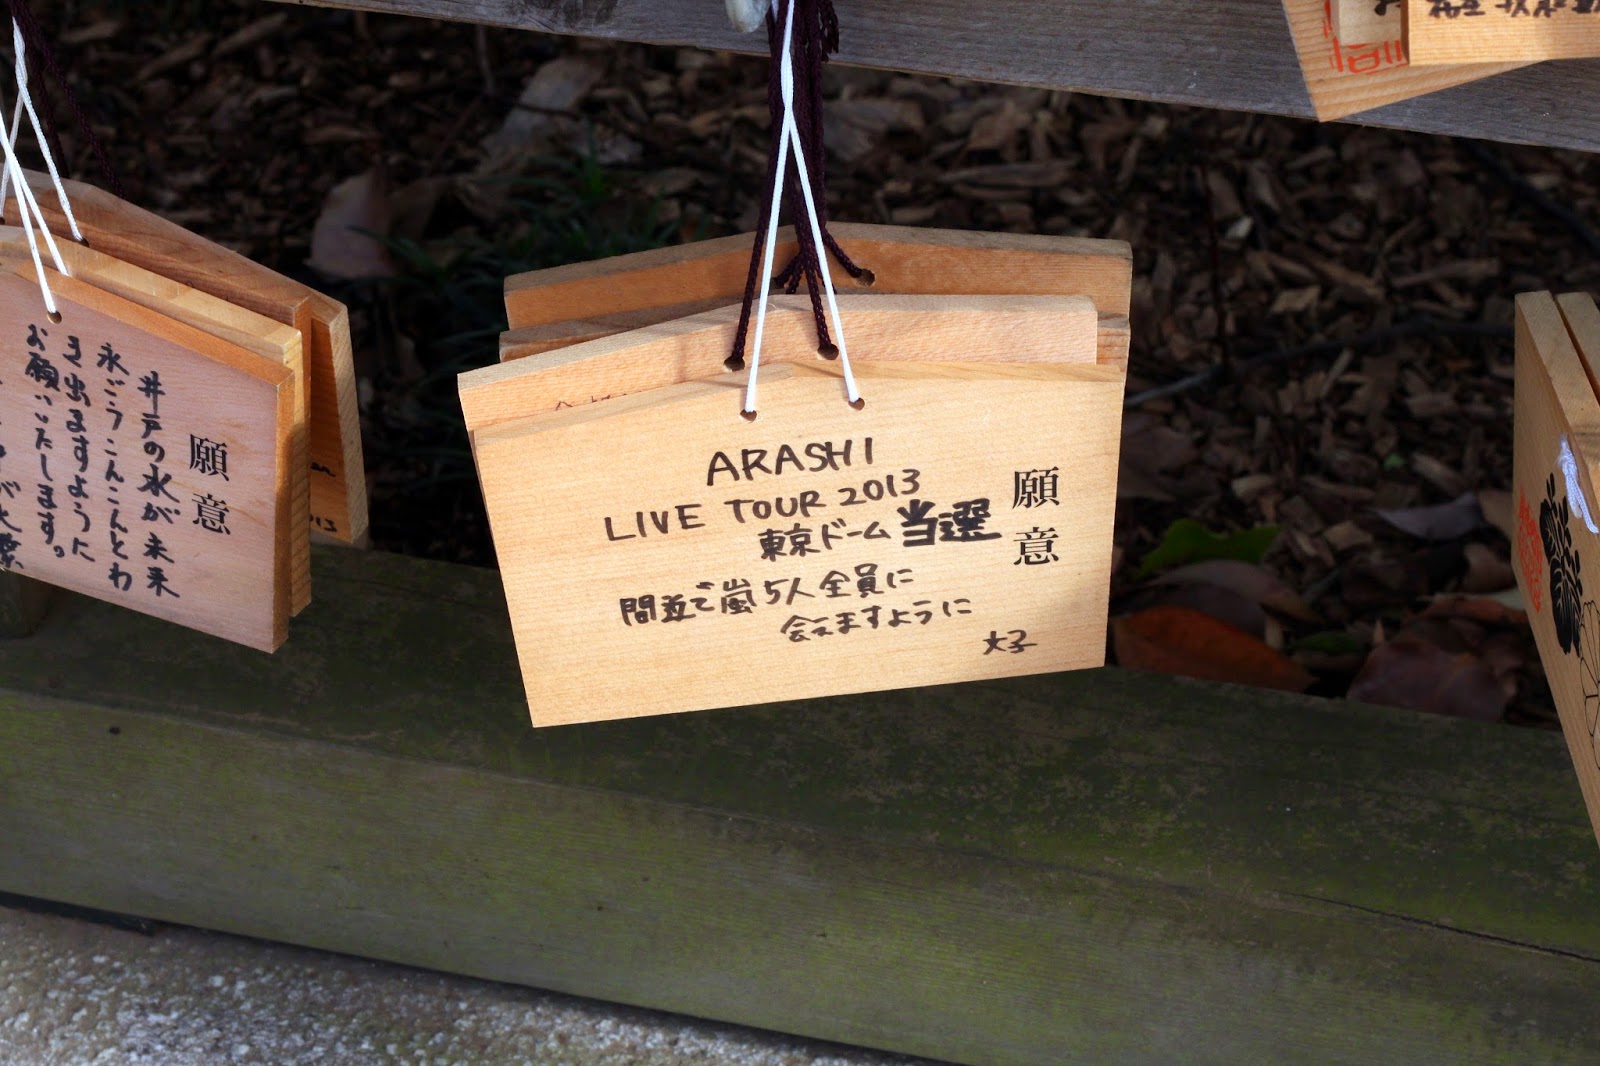 願意
井戸の水が未来
永ごうこんこんとわ
き出ますように
お願いいたします。
ARASHI
LIVE TOUR 2013
東京ドーム当選
願意
間近で嵐5人全員に
会えますように